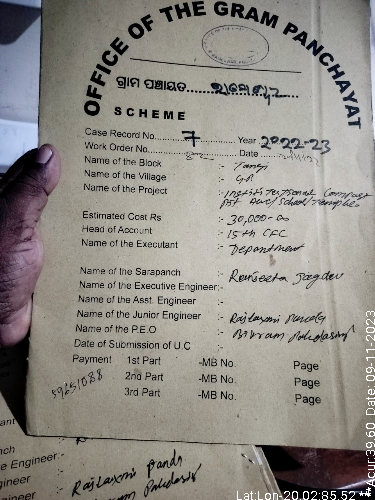 OFFICE OF THE GRAM PANCHAYAT
ଗ୍ରାମ ପଞ୍ଚାୟତ
SCHEME
Case Record No. 7 Year 2022-23
Work Order No. Date
Name of the Block :- Tangi
Name of the Village :- G.P.
Name of the Project :- Institutional Compost
pit AWC/School/Temples
Estimated Cost Rs :- 30,000-00
Head of Account :- 15th CFC
Name of the Executant :- Department
Name of the Sarapanch :- Ranjeeta Jagdev
Name of the Executive Engineer:-
Name of the Asst. Engineer :-
Name of the Junior Engineer :- Rajlaxmi Panda
Name of the P.E.O :- Bikram
Date of Submission of U.C :-
Payment 1st Part -MB No. Page
2nd Part -MB No. Page
3rd Part -MB No. Page
Engineer:-
Engineer :-
Engineer :- Rajlaxmi Panda
Lat:Lon-20.02:85.52
Acur:39.60 Date. 09-11-2023